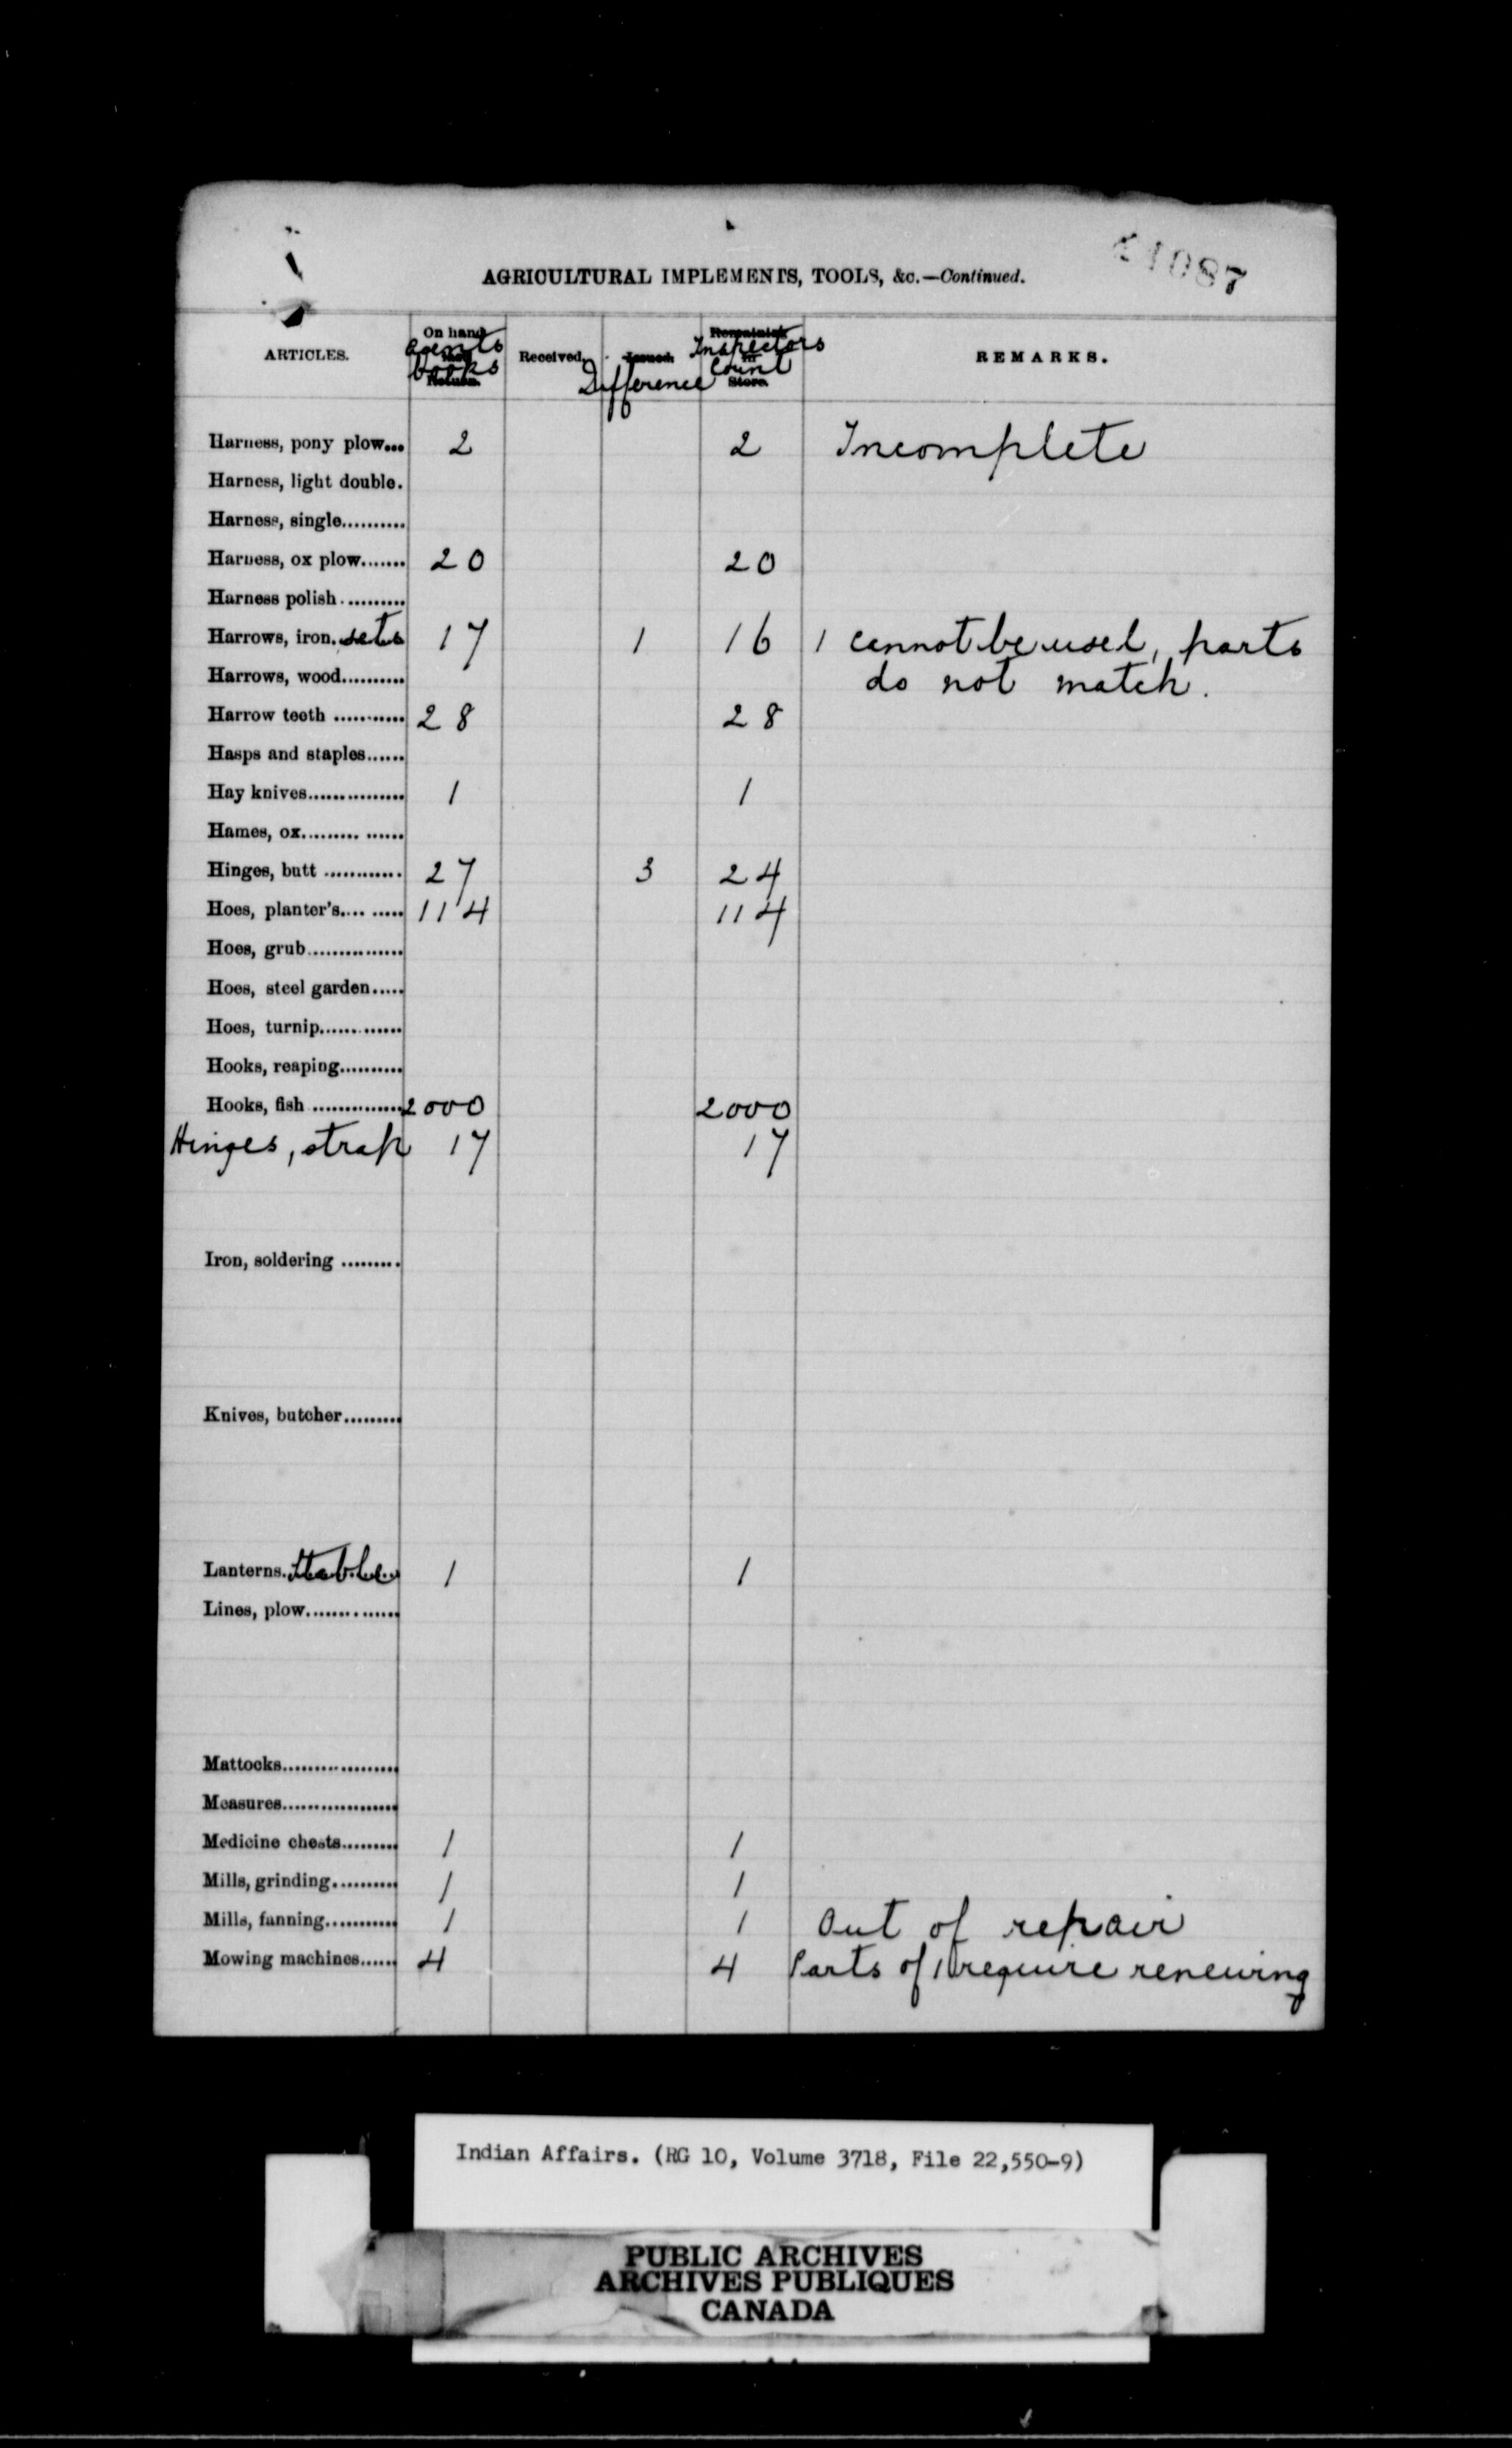 41087
AGRICULTURAL IMPLEMENTS, TOOLS, &c.—Continued.
ARTICLES. On hand Agents books Return. Received. Issued. Difference Remaining in Store. Inspectors Count REMARKS.
Harness, pony plow... 2 2 Incomplete
Harness, light double.
Harness, single..........
Harness, ox plow....... 20 20
Harness polish ..........
Harrows, iron. sets 17 1 16 1 cannot be used, parts
Harrows, wood.......... do not match.
Harrow teeth ........... 28 28
Hasps and staples......
Hay knives............... 1 1
Hames, ox......... ......
Hinges, butt ............ 27 3 24
Hoes, planter's.... ..... 114 114
Hoes, grub...............
Hoes, steel garden.....
Hoes, turnip.............
Hooks, reaping..........
Hooks, fish .............. 2000 2000
Hinges, strap 17 17
Iron, soldering .........
Knives, butcher.........
Lanterns. Stable 1 1
Lines, plow..............
Mattocks..................
Measures..................
Medicine chests......... 1 1
Mills, grinding.......... 1 1
Mills, fanning........... 1 1 Out of repair
Mowing machines...... 4 4 Parts of 1 require renewing
Indian Affairs. (RG 10, Volume 3718, File 22,550-9)
PUBLIC ARCHIVES
ARCHIVES PUBLIQUES
CANADA